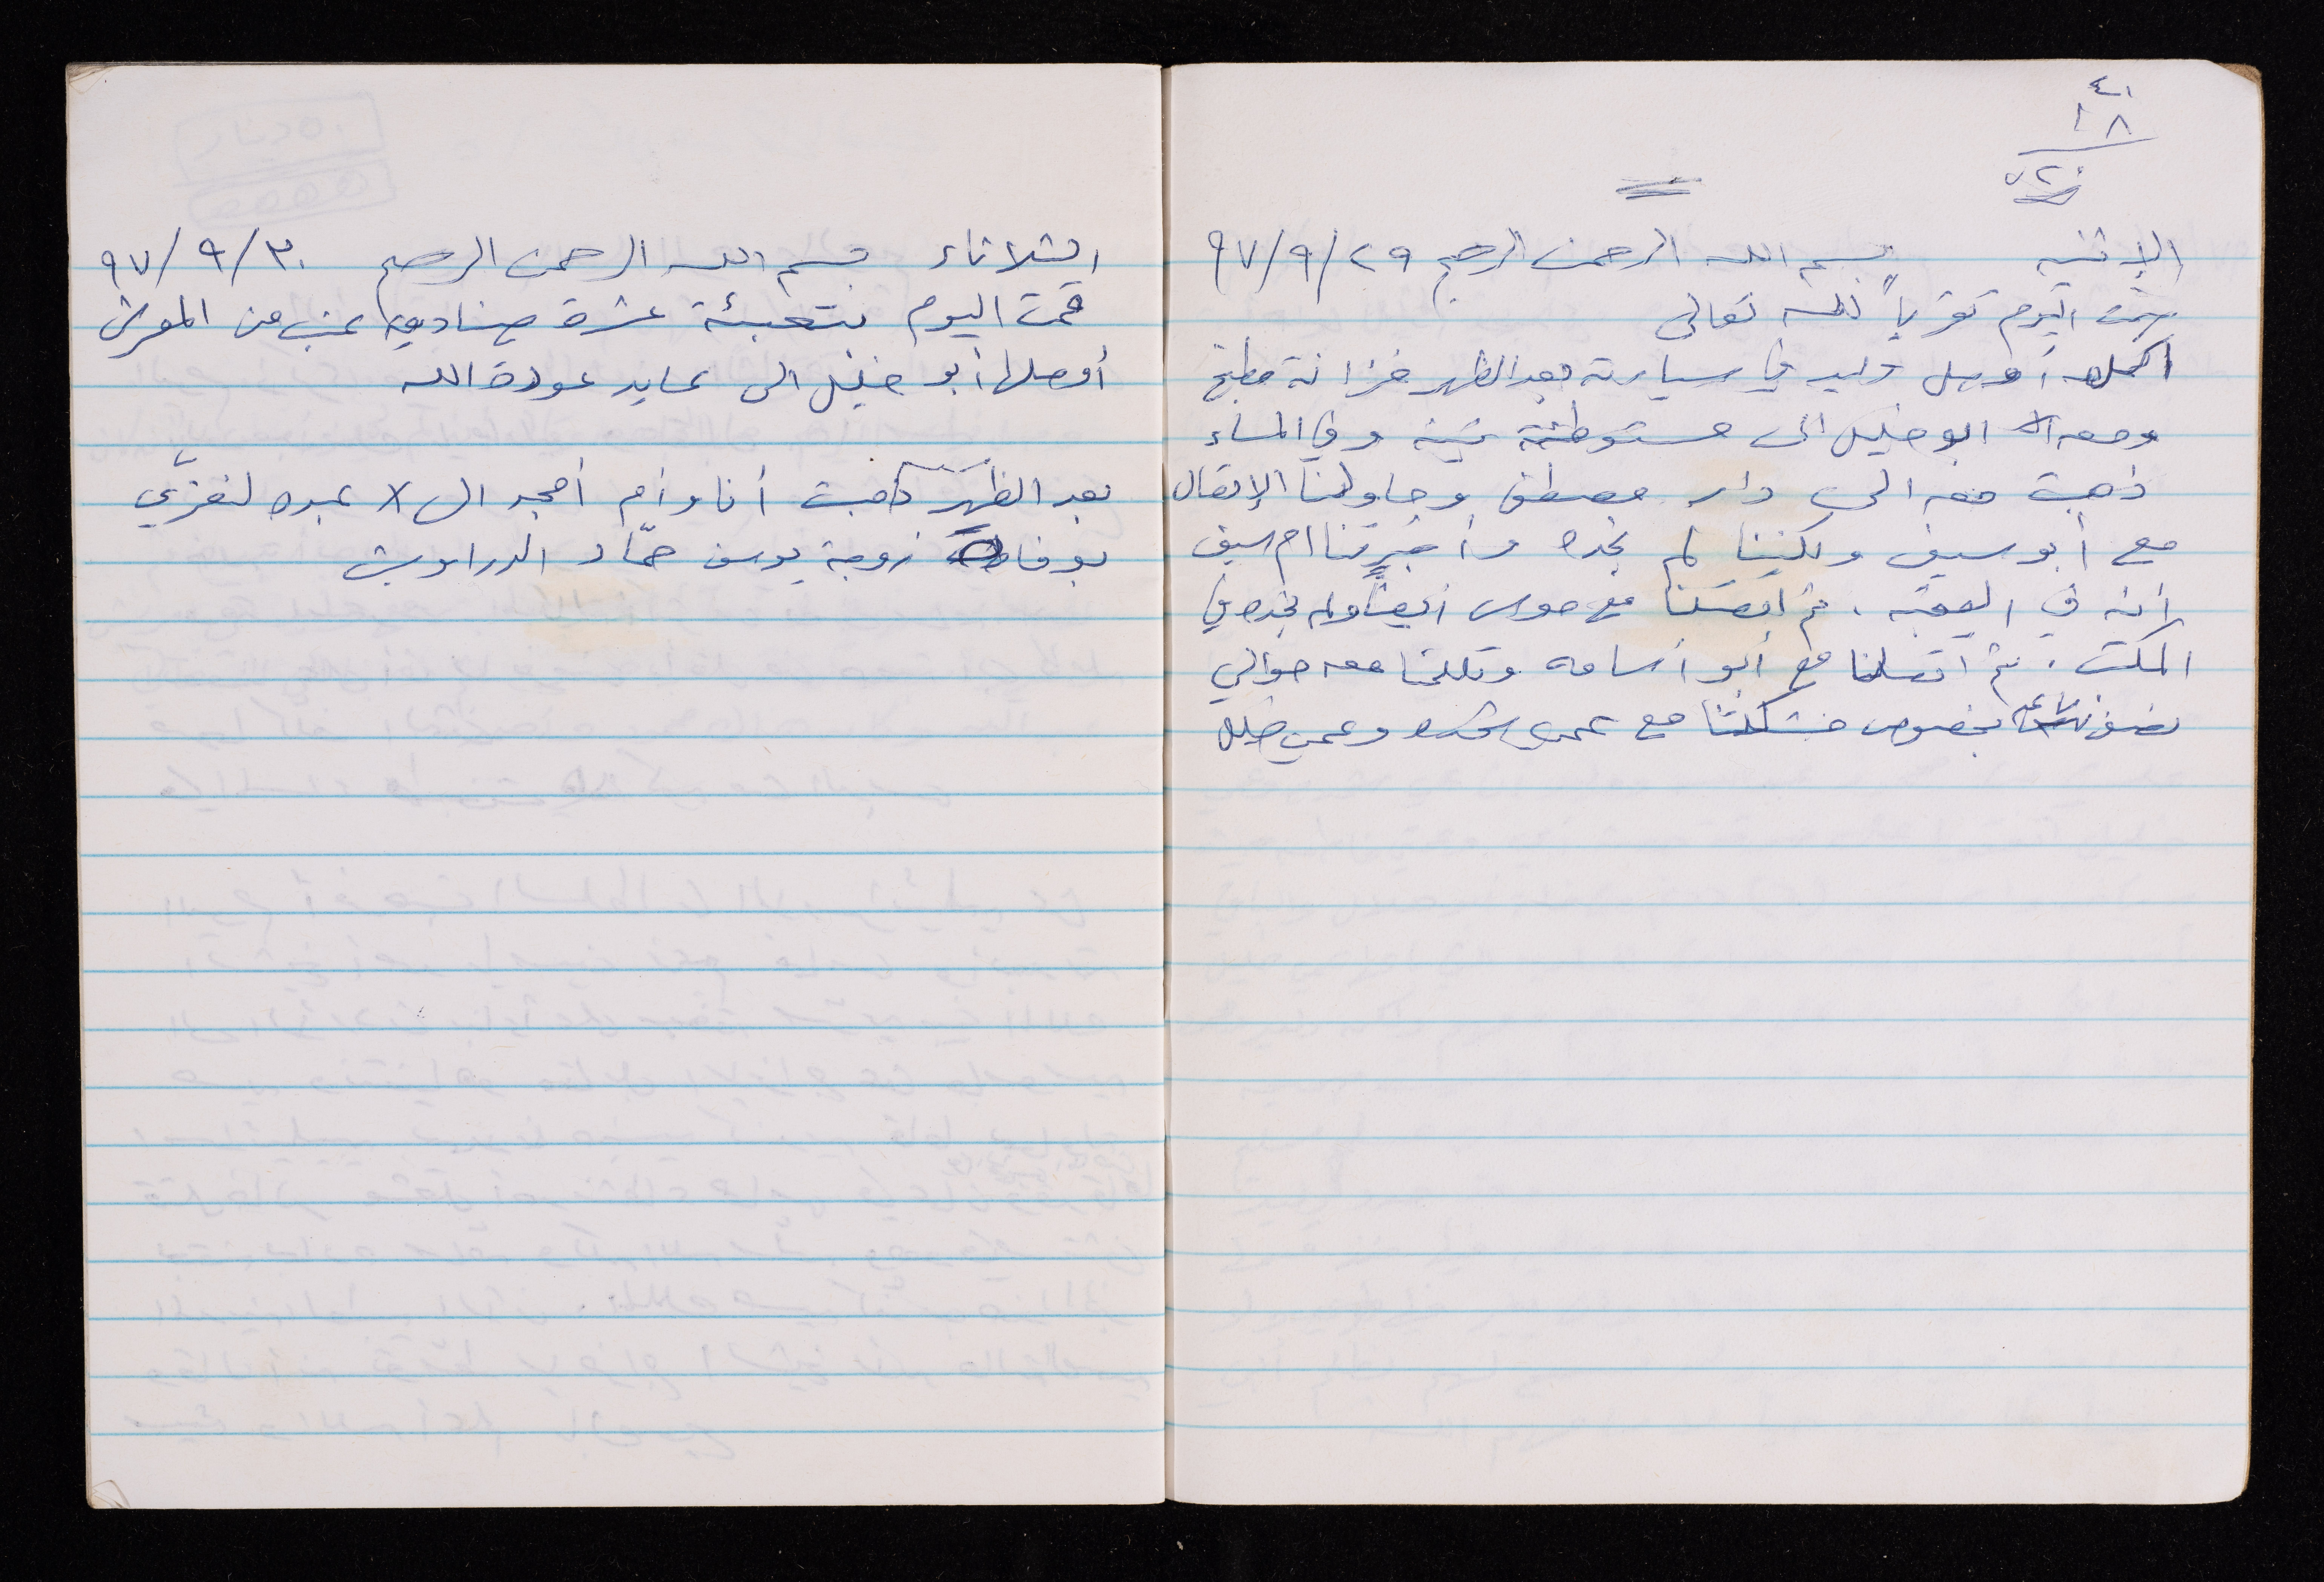 ٤١
١٨
٧٢٠
الإثنين بسم الله الرحمن الرحيم ٢٩/٩/٩٧
صمت اليوم تقرباً لله تعالى
أوصل وليد في سيارته بعد الظهر خزانة مطبخ
ومعه ابو خليل الى مستوطنة وفي المساء
ذهبت معه الى دار مصطفى وحاولنا الإتصال
مع أبو سيف ولكننا لم نجده وأخبرتنا ام سيف
أنه في العقبة. ثم اتصلنا مع موسى أيضاً ولم نجده في
المكتب. ثم اتصلنا مع أبو أسامه وتكلمنا معه حوالي
نصف ساعة بخصوص مشكلتنا مع عمي وعمي خليل
الثلاثاء بسم الله الرحمن الرحيم ٣٠/٩/٩٧
قمت اليوم بتعبئة عشرة صناديق عنب من المعرش
أوصلها أبو خليل الى عايد عودة الله
بعد الظهر ذهبت أنا وأم أمجد الى لا عبده لنعزّي
بوفاة زوجة يوسف حمّاد الدراويش